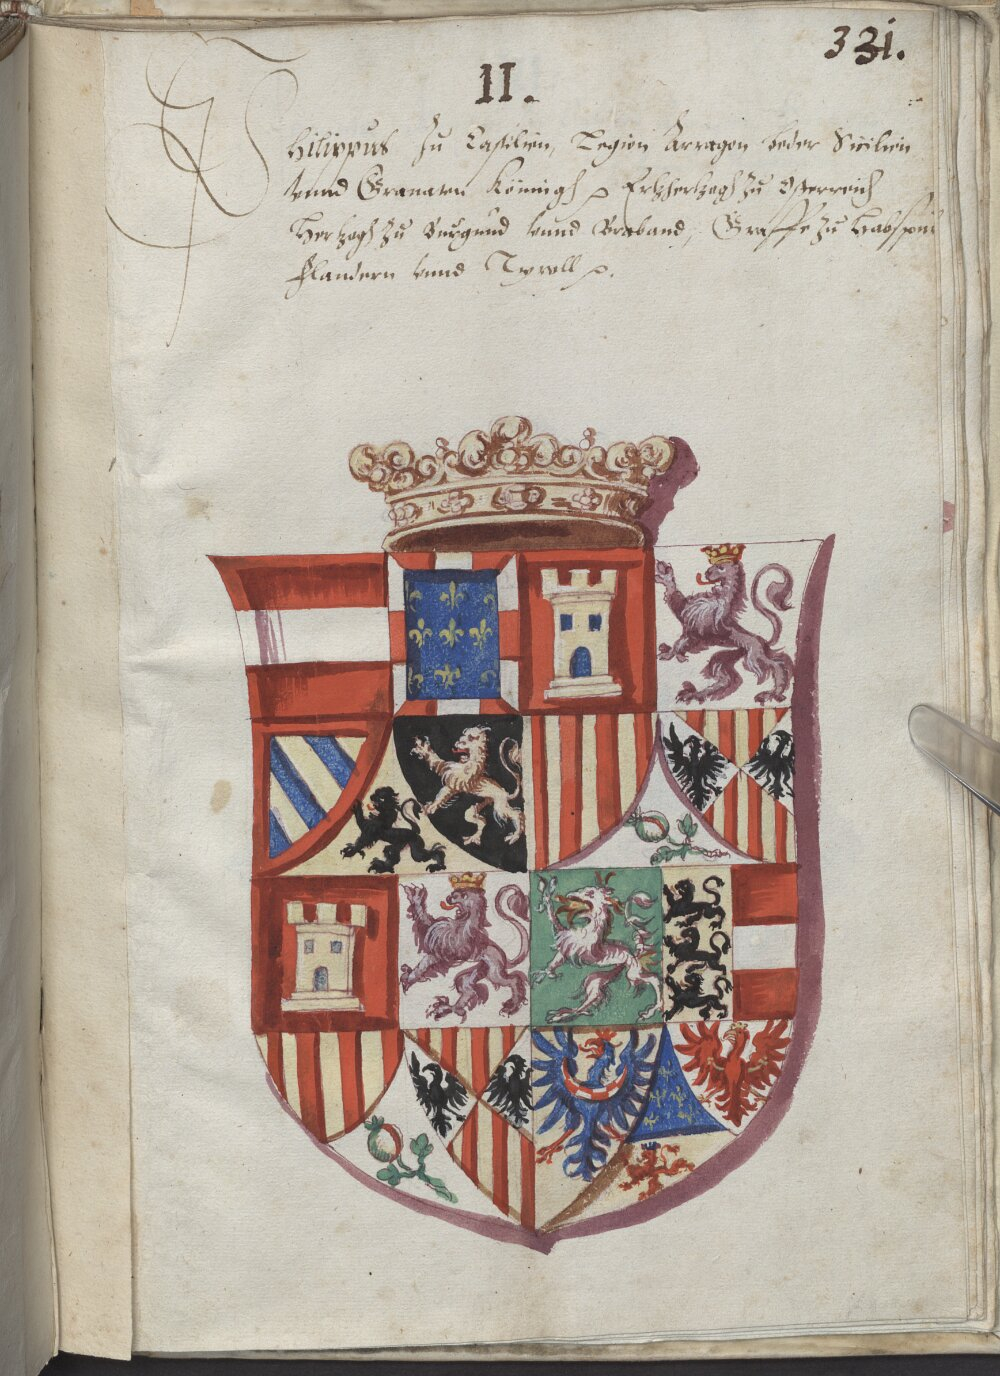 331.
II.
Philippus zu Castilien, Legion Arragon beder Sicilien
vnnd Granaten Königh ꝛ Ertzhertzogh zu Osterreich
Hertzogh zu Burgund vnnd Braband, Graffe zu Habspur
Flandern vnnd Tyroll ꝛ.